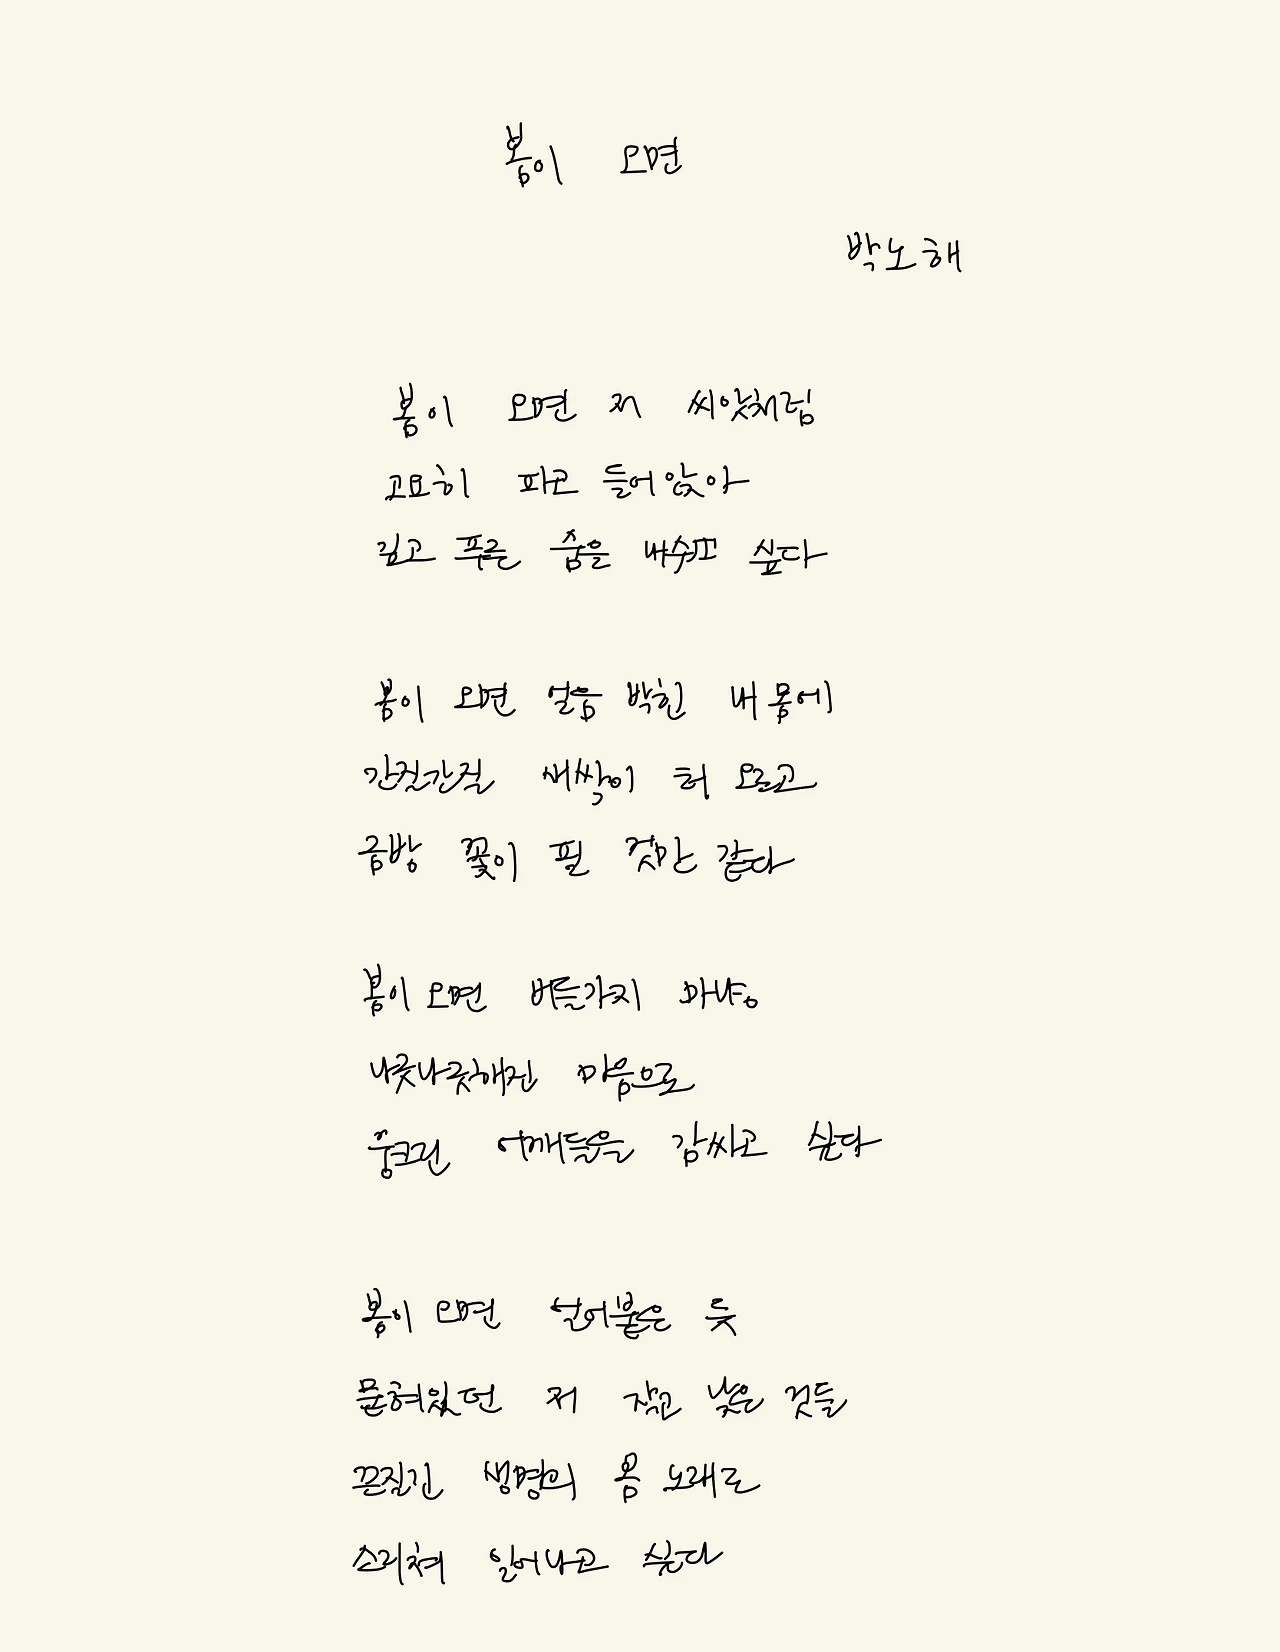 봄이 오면
박노해
봄이 오면 저 씨앗처럼
고요히 파고 들어앉아
깊고 푸른 숨을 내쉬고 싶다
봄이 오면 얼음 박힌 내 몸에
간질간질 새싹이 혀 오르고
금방 꽃이 필 것만 같다
봄이 오면 버들가지 마냥
나긋나긋해진 마음으로
웅크린 어깨들을 감싸고 싶다
봄이 오면 얼어붙은 듯
묻혀있던 저 작고 낮은 것들
끈질긴 생명의 봄 노래로
소리쳐 일어나고 싶다